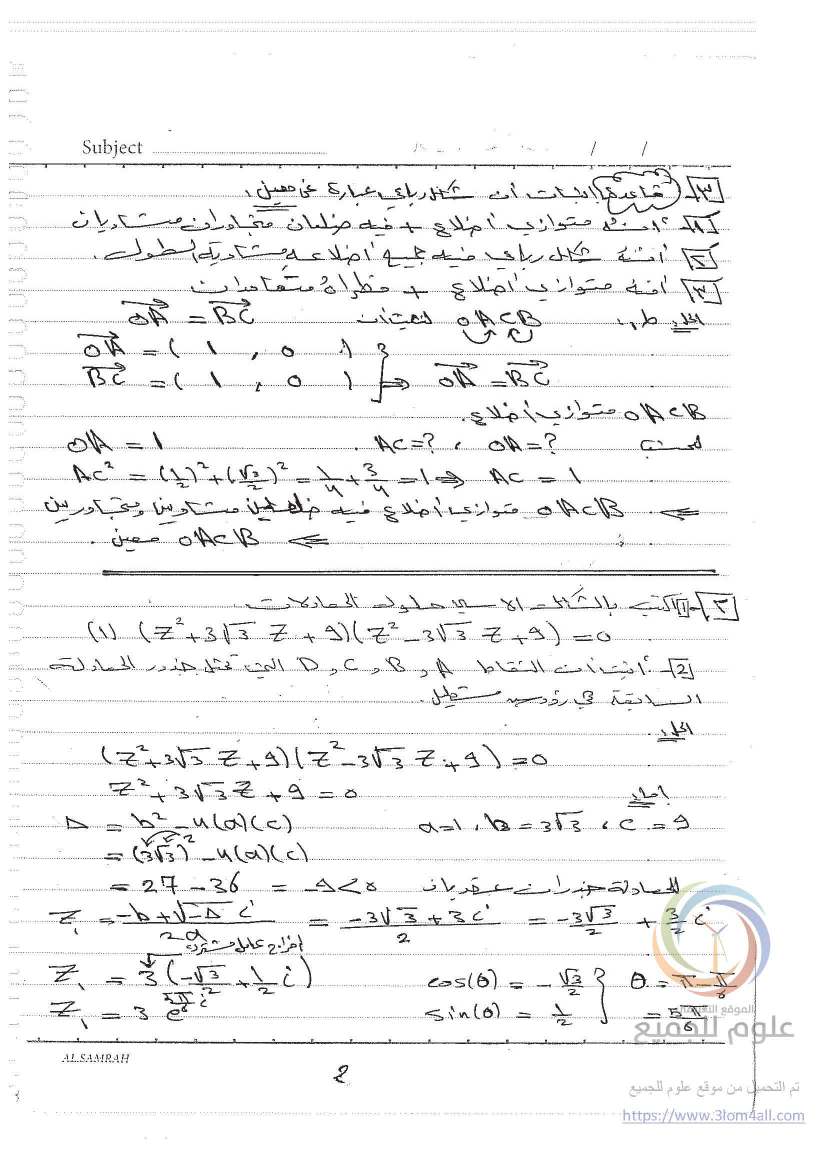 Subject / /
[3] قاعدة إثبات أن شكل رباعي عبارة عن معين.
[1] أنه متوازي أضلاع + فيه ضلعان متجاوران متساويان
[2] أنه شكل رباعي فيه جميع أضلاعه متساوية الطول.
[3] أنه متوازي أضلاع + قطراه متعامدان
الحل: ط1، OACB لنثبت أن OA = BC
OA = ( 1 , 0 )
BC = ( 1 , 0 ) ⇒ OA = BC
OACB متوازي أضلاع.
لنحسب OA=? ، AC=? OA = 1
AC² = (1/2)² + (√3/2)² = 1/4 + 3/4 = 1 ⇒ AC = 1
⇐ OACB متوازي أضلاع فيه ضلعين متساويين ومتجاورين
⇐ OACB معين.
[2] [1] اكتب بالشكل الأسي حلول المعادلات.
(1) (Z²+3√3 Z + 9)(Z²-3√3 Z+9) = 0
[2] أثبت أن النقاط A و B و C و D التي تمثل جذور المعادلة
السابقة هي رؤوس مستطيل.
الحل:
(Z²+3√3 Z+9)(Z²-3√3 Z+9) = 0
إما: Z²+3√3 Z+9 = 0
Δ = b² - 4(a)(c) a=1 ، b=3√3 ، c=9
= (3√3)² - 4(a)(c)
= 27 - 36 = -9 < 0 للمعادلة جذران عقديان
Z₁ = (-b+√-Δ i)/2a = (-3√3 + 3i)/2 = -3√3/2 + 3/2 i
إخراج عامل مشترك
Z₁ = 3(-√3/2 + 1/2 i) cos(θ) = -√3/2 θ = π - π/6
Z₁ = 3 e^(5π/6 i) sin(θ) = 1/2 = 5π/6
الموقع التعليمي
علوم للجميع
AL SAMRAH
2
تم التحميل من موقع علوم للجميع
https://www.3lom4all.com